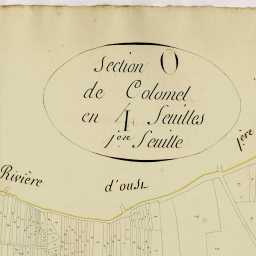 Section O
de Colomel
en 4 feuilles
1ère feuille
1ère
Rivière d'oust